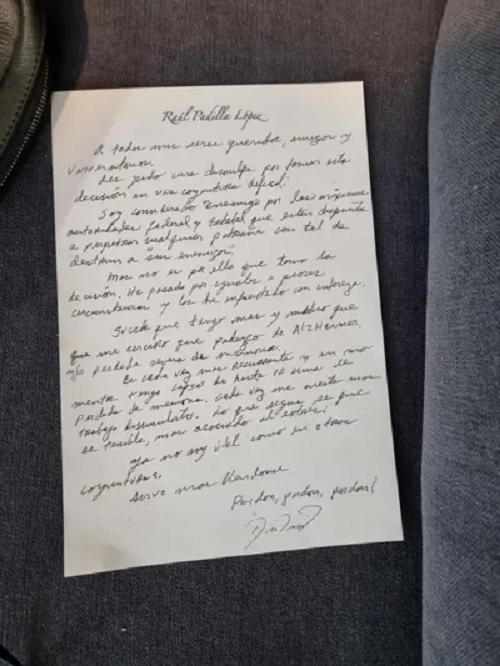 Raúl Padilla López
A todos mis seres queridos, amigos y
Universitarios.
Les pido una disculpa por tomar esta
decisión en una coyuntura difícil.
Soy considerado "enemigo" por las máximas
autoridades federal y estatal que están dispuestas
a perpetrar cualquier patraña con tal de
destruir a "sus enemigos".
Mas no es por ello que tomo la
decisión. He pasado por iguales o peores
circunstancias y las he enfrentado con entereza.
Sucede que tengo mas y
que me que padezco de Alzheimer
y/o perdida de memoria.
Es cada vez mas recurrente y en mi
mente tengo lapsos de hasta 10 de
perdida de memoria. Cada vez me cuesta mas
trabajo Lo que sigue se que
es terrible, mas asociado al estrés.
Ya no soy útil como en otras
coyunturas.
Perdon, perdon, perdon!